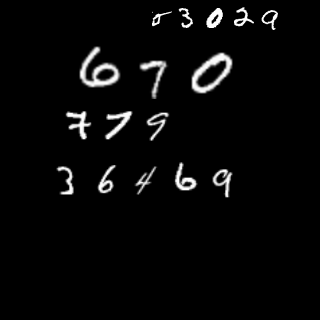 53029
670
779
36469